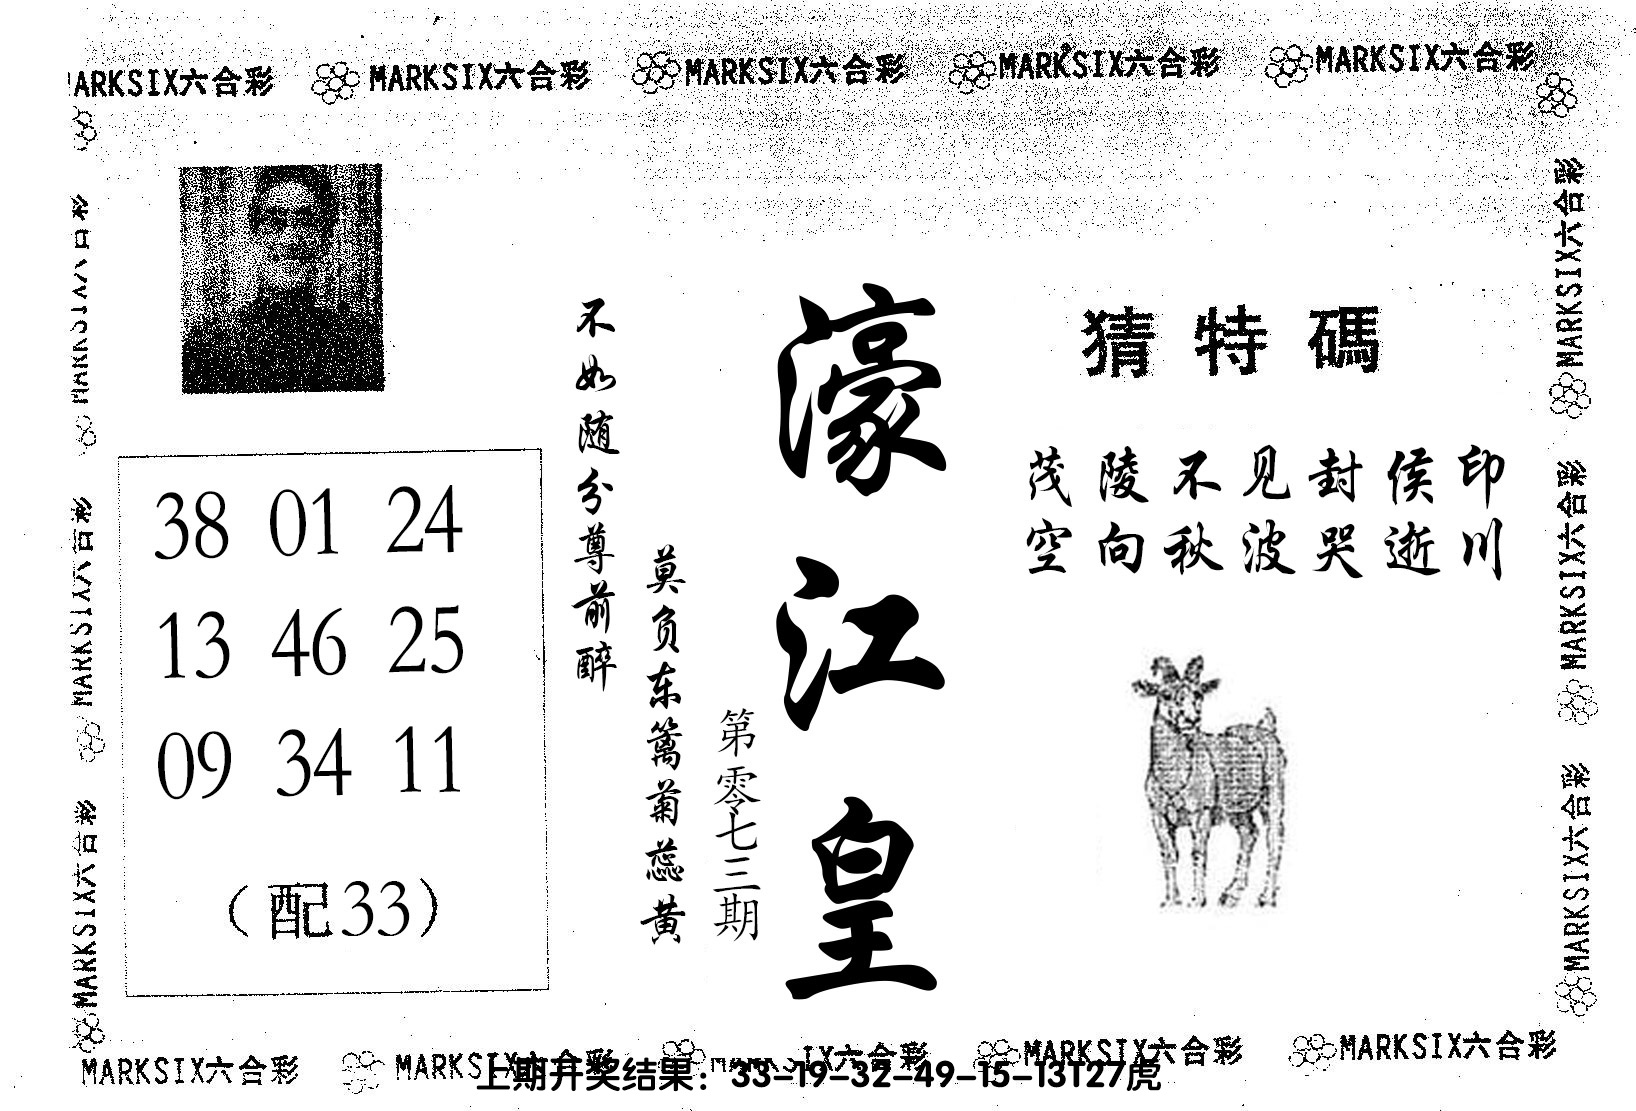 MARKSIX六合彩 MARKSIX六合彩 MARKSIX六合彩 MARKSIX六合彩 MARKSIX六合彩
MARKSIX六合彩
MARKSIX六合彩
MARKSIX六合彩
猜特碼
茂陵不见封侯印
空向秋波哭逝川
濠江皇
第零七三期
莫负东篱菊蕊黄
不如随分尊前醉
38 01 24
13 46 25
09 34 11
（配33）
MARKSIX六合彩
MARKSIX六合彩
MARKSIX六合彩
MARKSIX六合彩 MARKSIX六合彩 MARKSIX六合彩 MARKSIX六合彩 MARKSIX六合彩
上期开奖结果：33-19-32-49-15-13T27虎